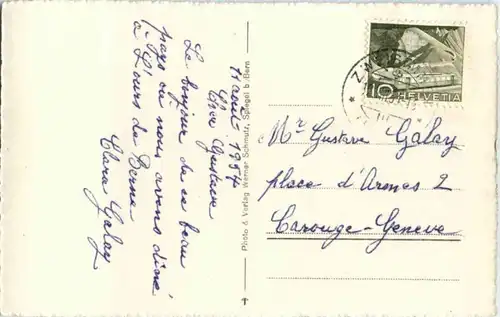 11 août 1954
Cher Gustave
Le bonjour de ce beau
pays où nous avons diné
à l'ours de Berne
Clara Galay
Photo & Verlag Werner Schmutz, Spiegel b/Bern
10 HELVETIA
Mr Gustave Galay
place d'Armes 2
Carouge-Geneve